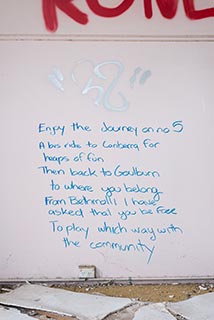 Enjoy the Journey on no 5
A bus ride to Canberra for
heaps of fun
Then back to Goulburn
to where you belong
From Bethnal I have
asked that you be Free
To play which way with
the community